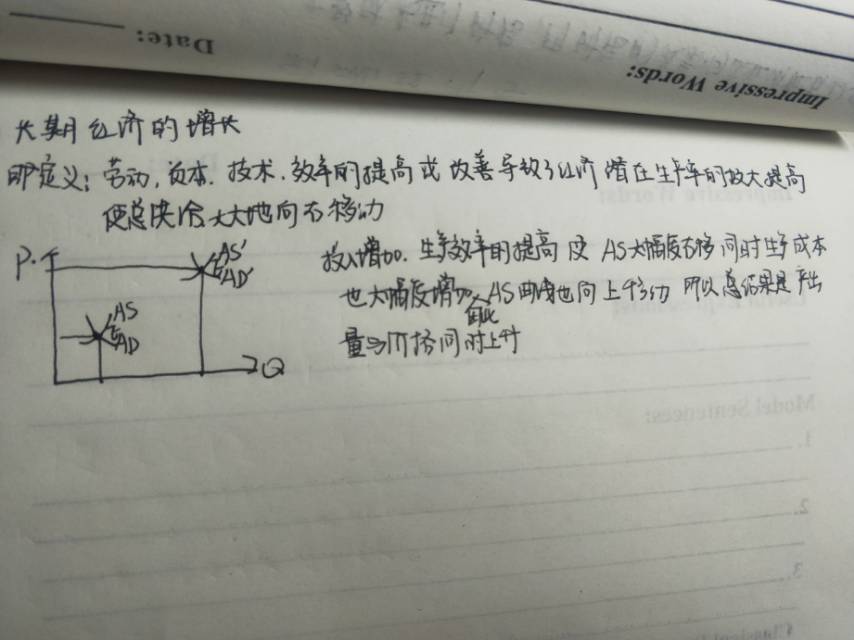 Date:
Impressive Words:
长期经济的增长
即定义：劳动，资本．技术．效率的提高或改善导致了经济潜在生产率的极大提高
使总供给大大地向右移动
P
AS'
AD'
AS
AD
Q
投入增加．生产效率的提高使AS大幅度右移同时生产成本
也大幅度增加 因此 AS曲线也向上移动 所以总结果是产出
量与价格同时上升
Model Sentences:
1.
2.
3.